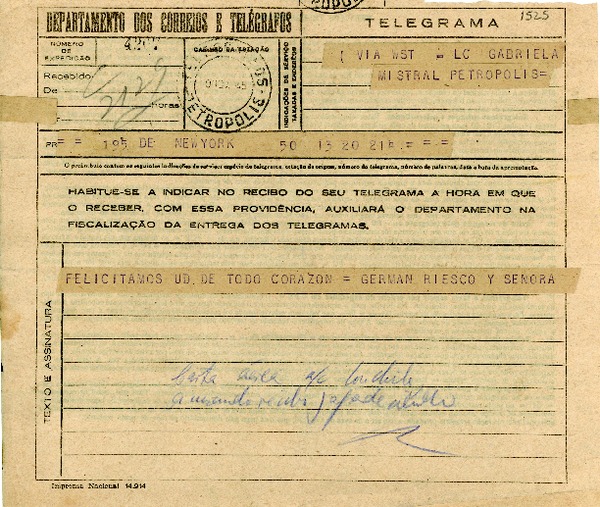 DEPARTAMENTO DOS CORREIOS E TELÉGRAFOS
TELEGRAMA
1525
NÚMERO DE EXPEDIÇÃO
CARIMBO DA ESTAÇÃO
INDICAÇÕES DE SERVIÇO TAXADAS E ENDEREÇO
( VIA WST = LC GABRIELA
MISTRAL PETROPOLIS=
Recebido:
De
horas
PETROPOLIS
PR= = 195 DE NEWYORK 50 13 20 21= = = =
O preâmbulo contem as seguintes indicações de serviço: espécie do telegrama, estação de origem, número do telegrama, número de palavras, data e hora da apresentação.
HABITUE-SE A INDICAR NO RECIBO DO SEU TELEGRAMA A HORA EM QUE
O RECEBER, COM ESSA PROVIDÊNCIA, AUXILIARÁ O DEPARTAMENTO NA
FISCALIZAÇÃO DA ENTREGA DOS TELEGRAMAS.
TEXTO E ASSINATURA
FELICITAMOS UD. DE TODO CORAZON = GERMAN RIESCO Y SENORA
Imprensa Nacional 14.914